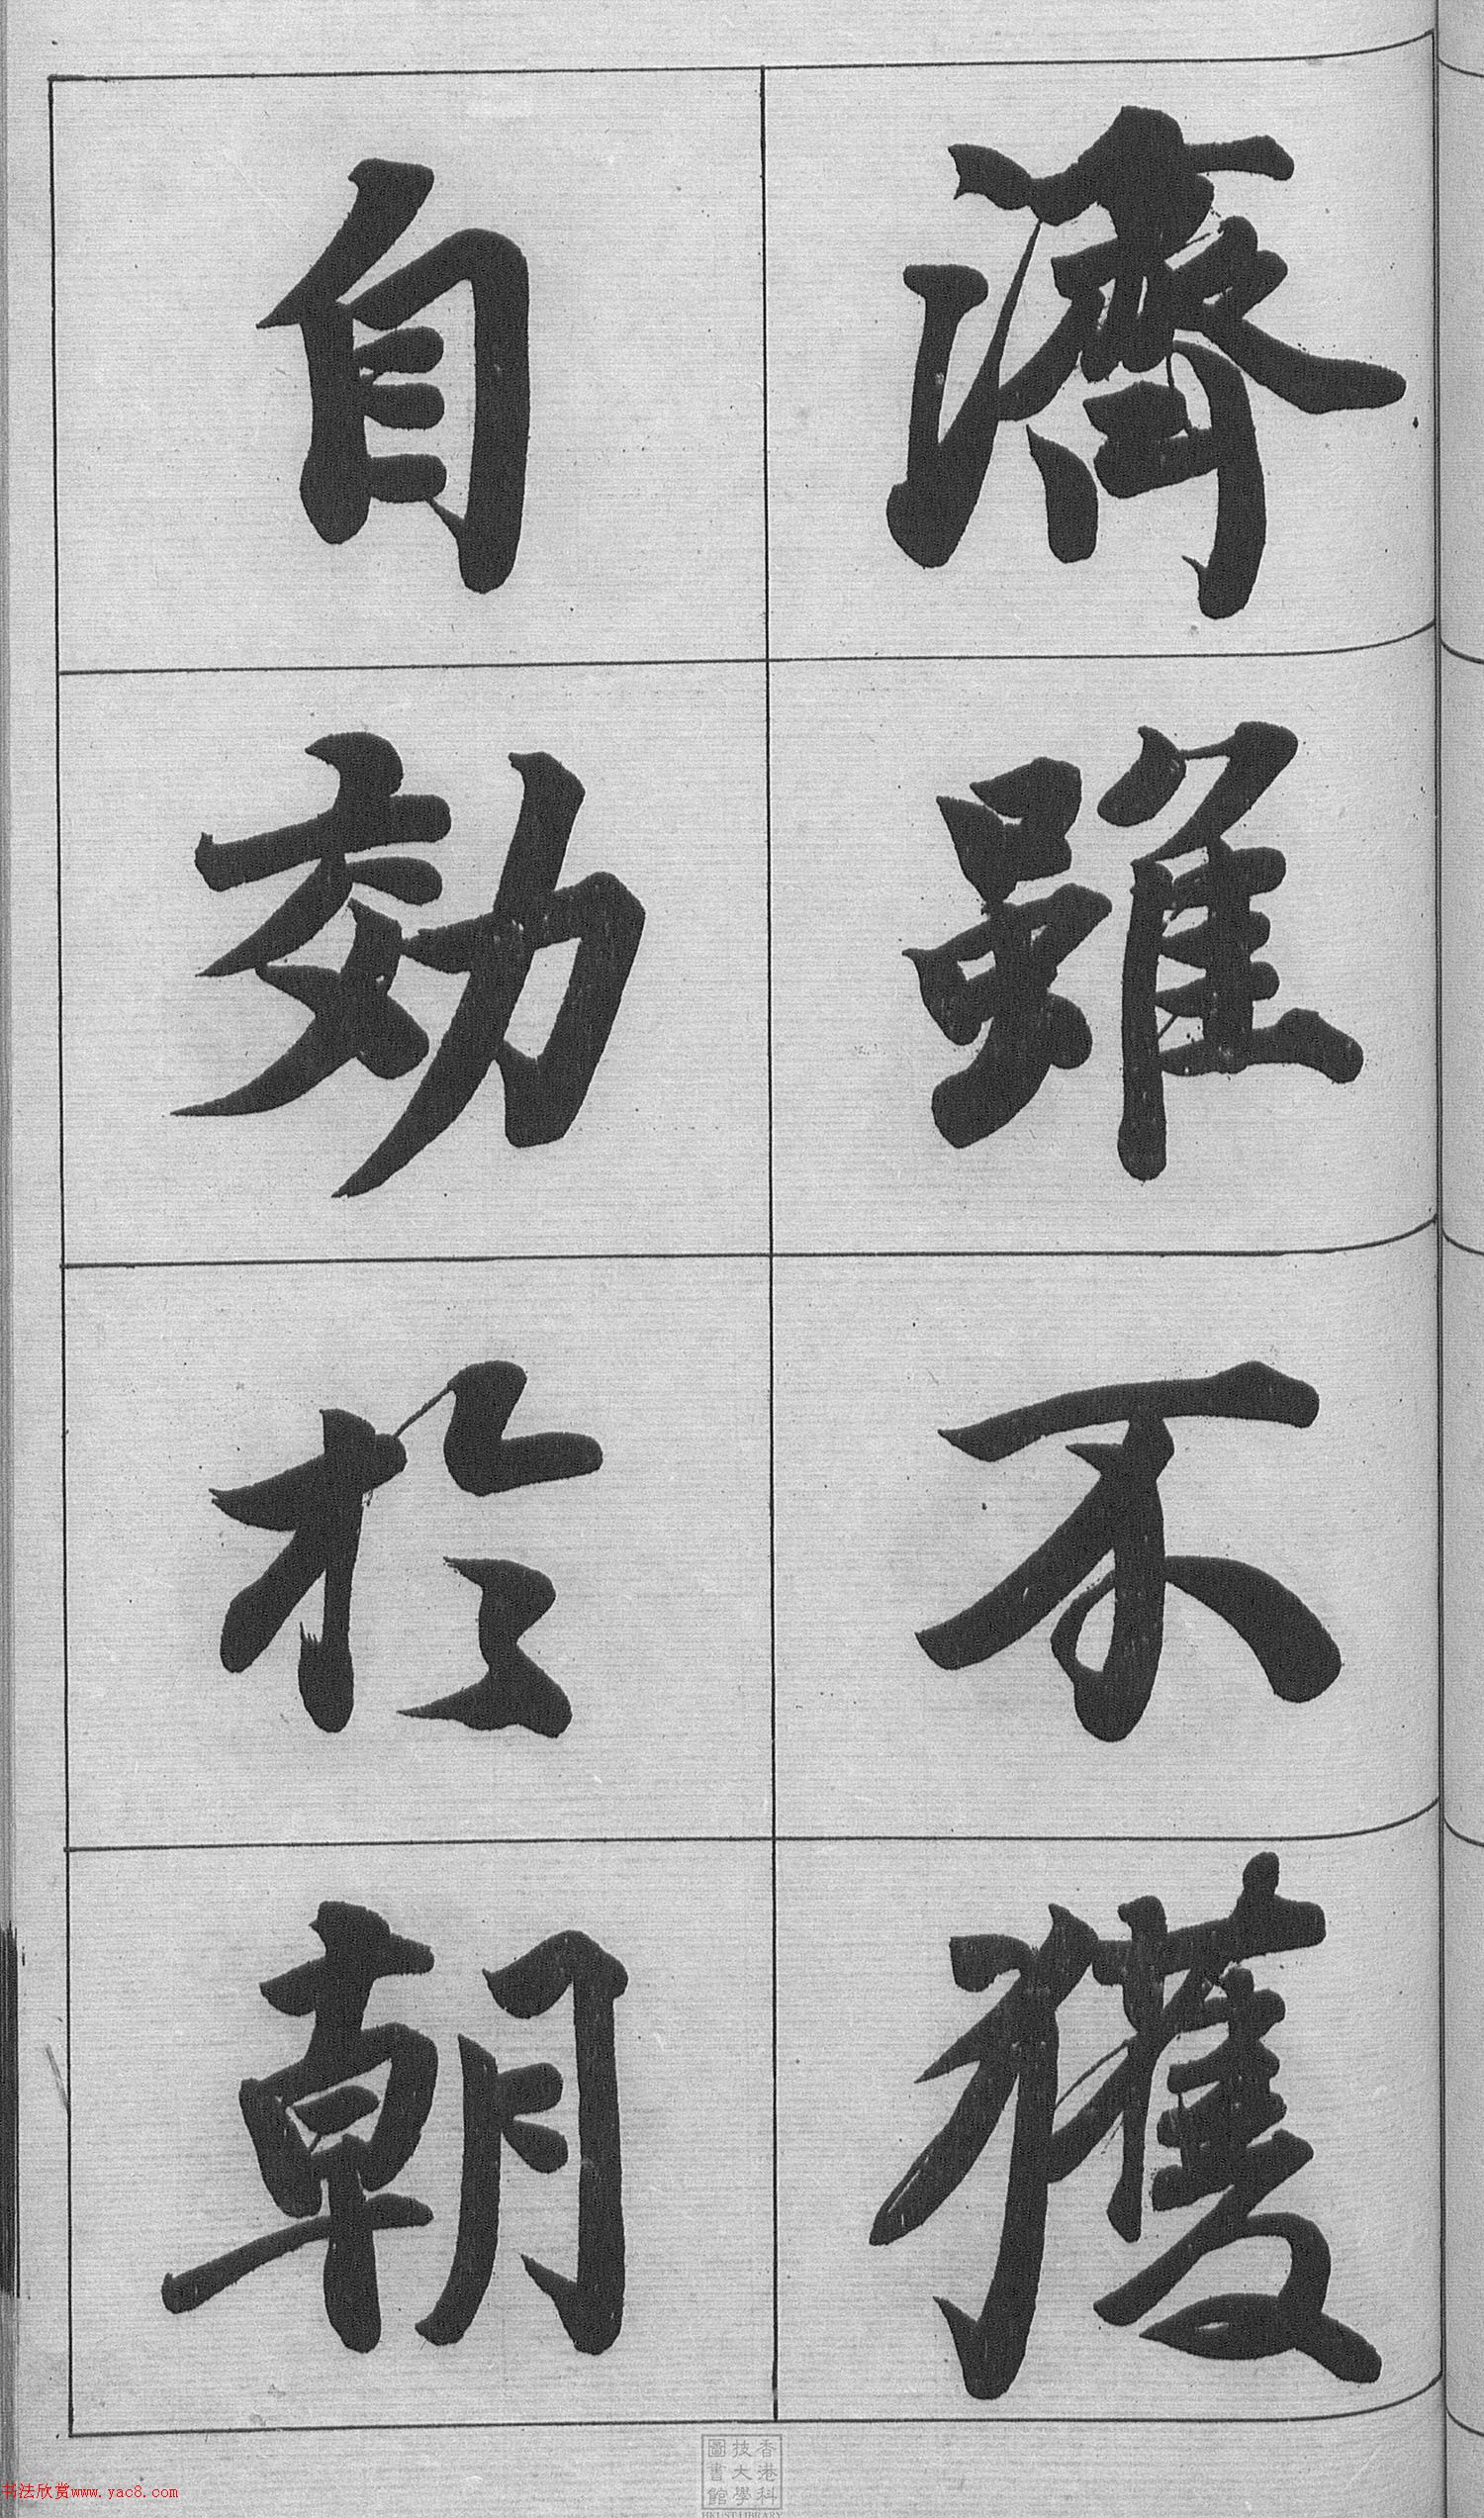 濟雖不獲
自効於朝
香港科
技大學
圖書館
HKUST LIBRARY
书法欣赏www.yac8.com